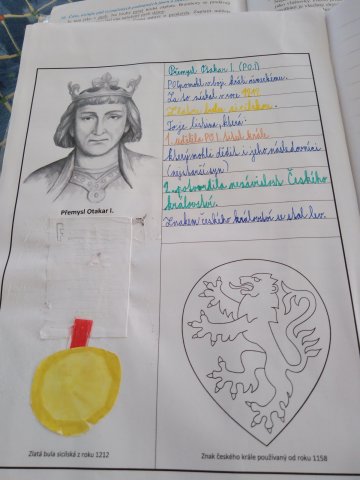 Přemysl Otakar I. (PO I.)
PO I. pomohl v boji králi římskému.
Za to získal v roce 1212
Zlatou bulu sicilskou.
To je listina, která:
1. udělila PO I. titul krále
který mohli dědit i jeho následovníci
(nejstarší syn)
2. potvrdila nezávislost Českého
království.
Znakem českého království se stal lev.
Přemysl Otakar I.
Zlatá bula sicilská z roku 1212
Znak českého krále používaný od roku 1158